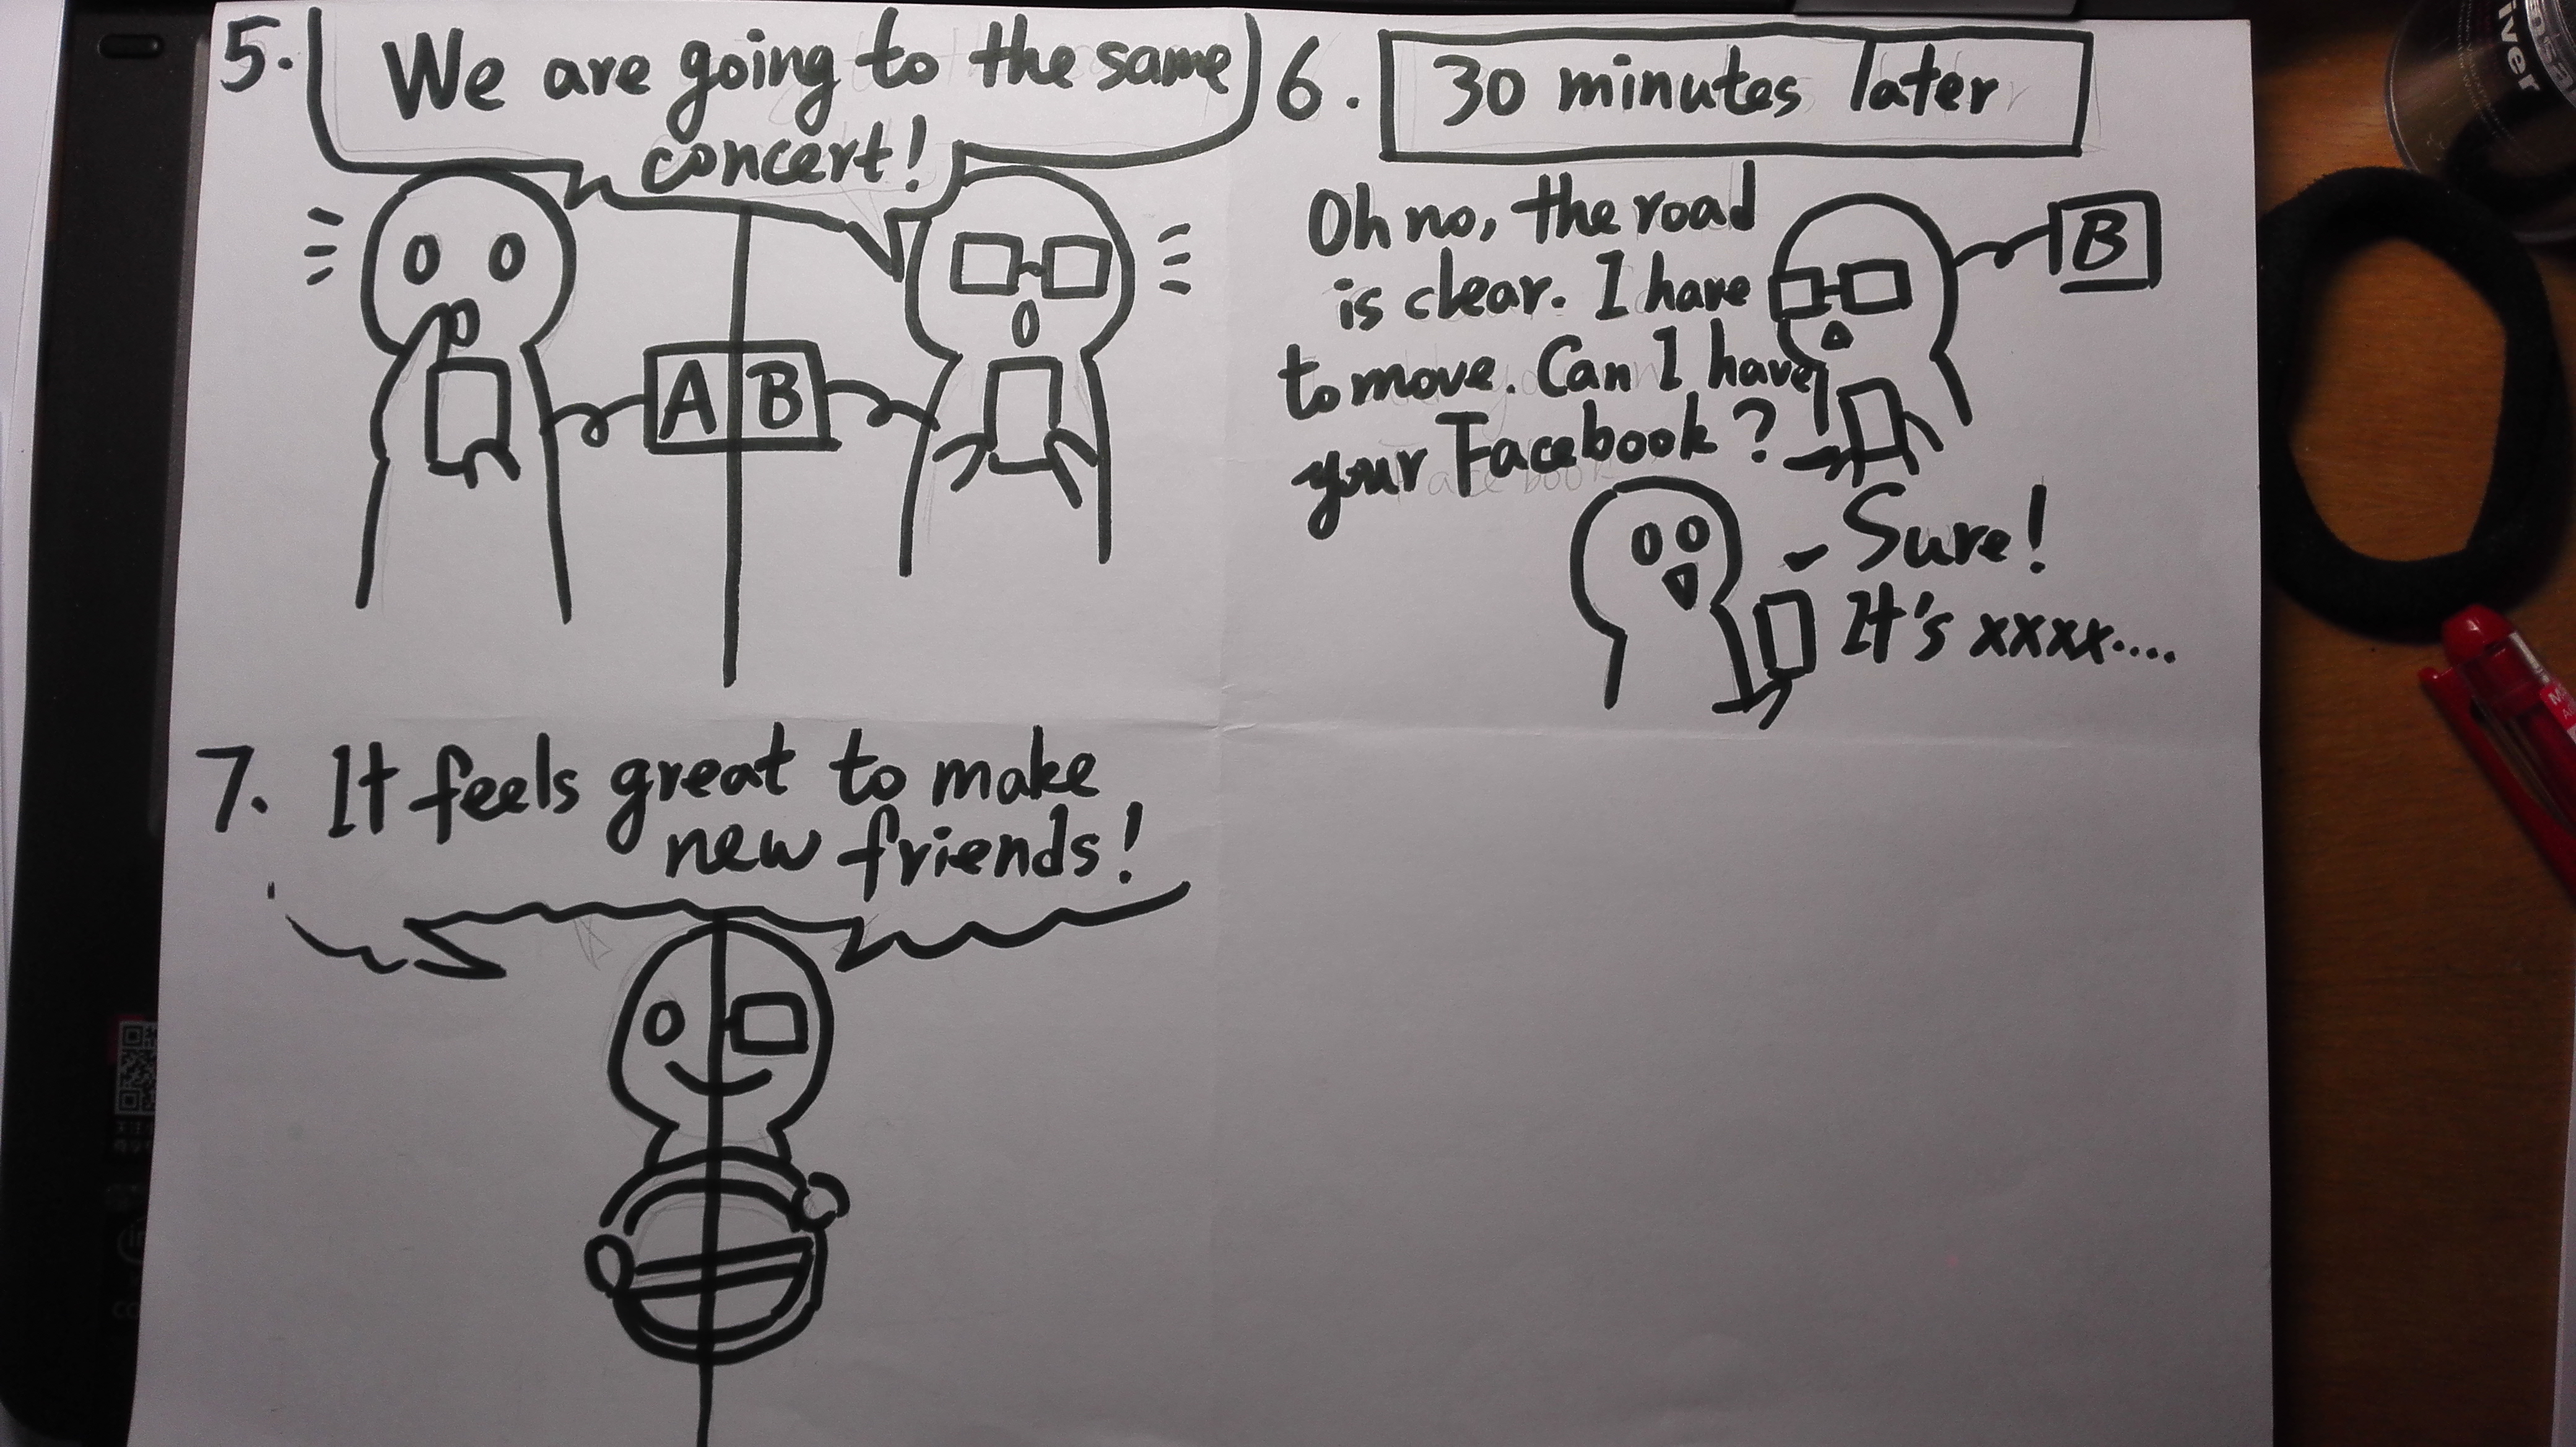 5.
We are going to the same
concert!
A B
6.
30 minutes later
Oh no, the road
is clear. I have
to move. Can I have
your Facebook?
B
Sure!
It's xxxx....
7. It feels great to make
new friends!
iver